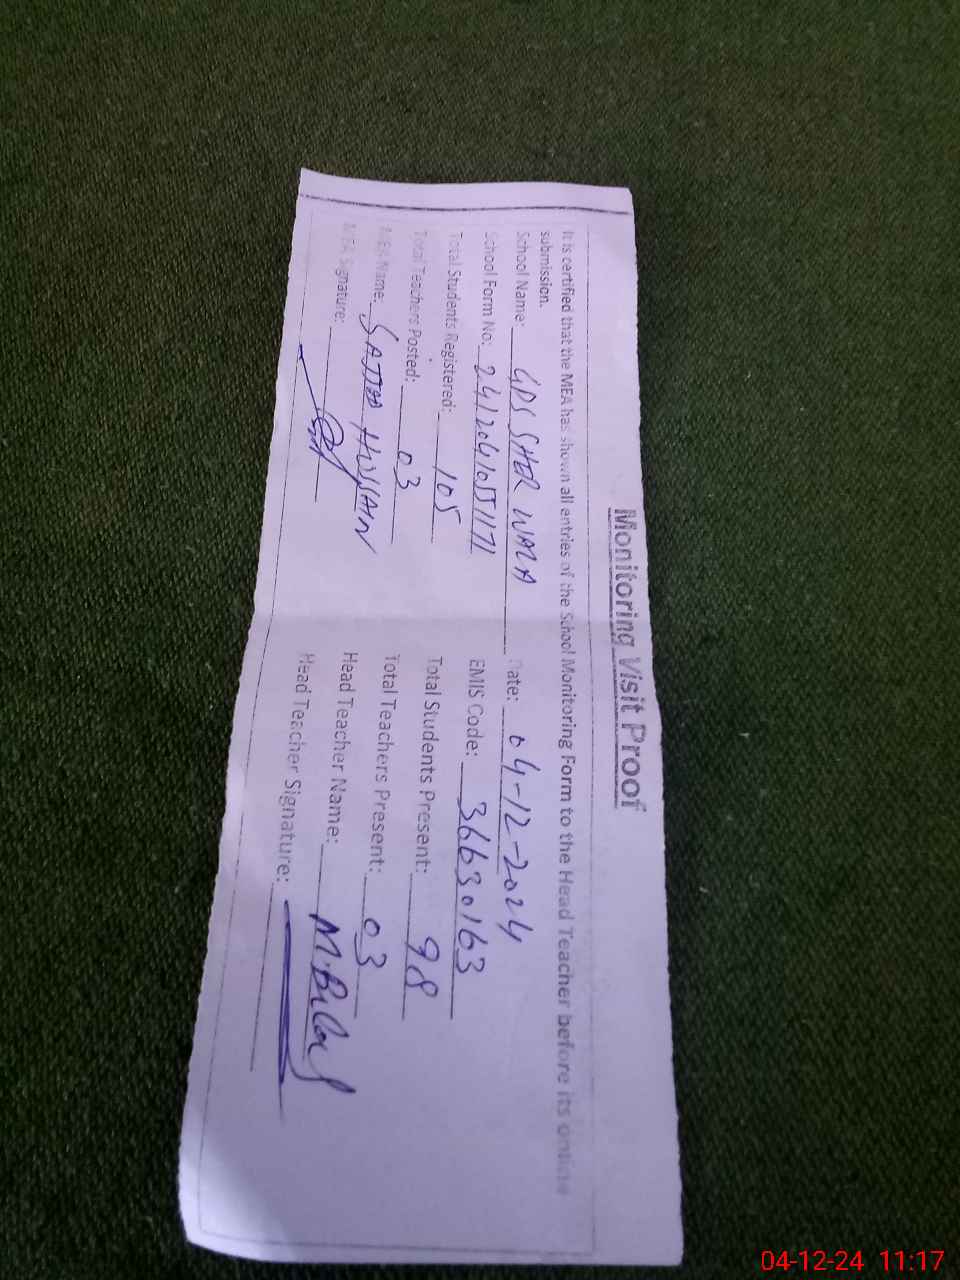 Monitoring Visit Proof
It is certified that the MEA has shown all entries of the School Monitoring Form to the Head Teacher before its online
submission.
School Name: GPS SHER WALA Date: 04-12-2024
School Form No: EMIS Code: 36630163
Total Students Registered: 105 Total Students Present: 98
Total Teachers Posted: 03 Total Teachers Present: 03
MEA Name: SAJJAD HUSSAIN Head Teacher Name: M.Bilal
MEA Signature: Head Teacher Signature:
04-12-24 11:17